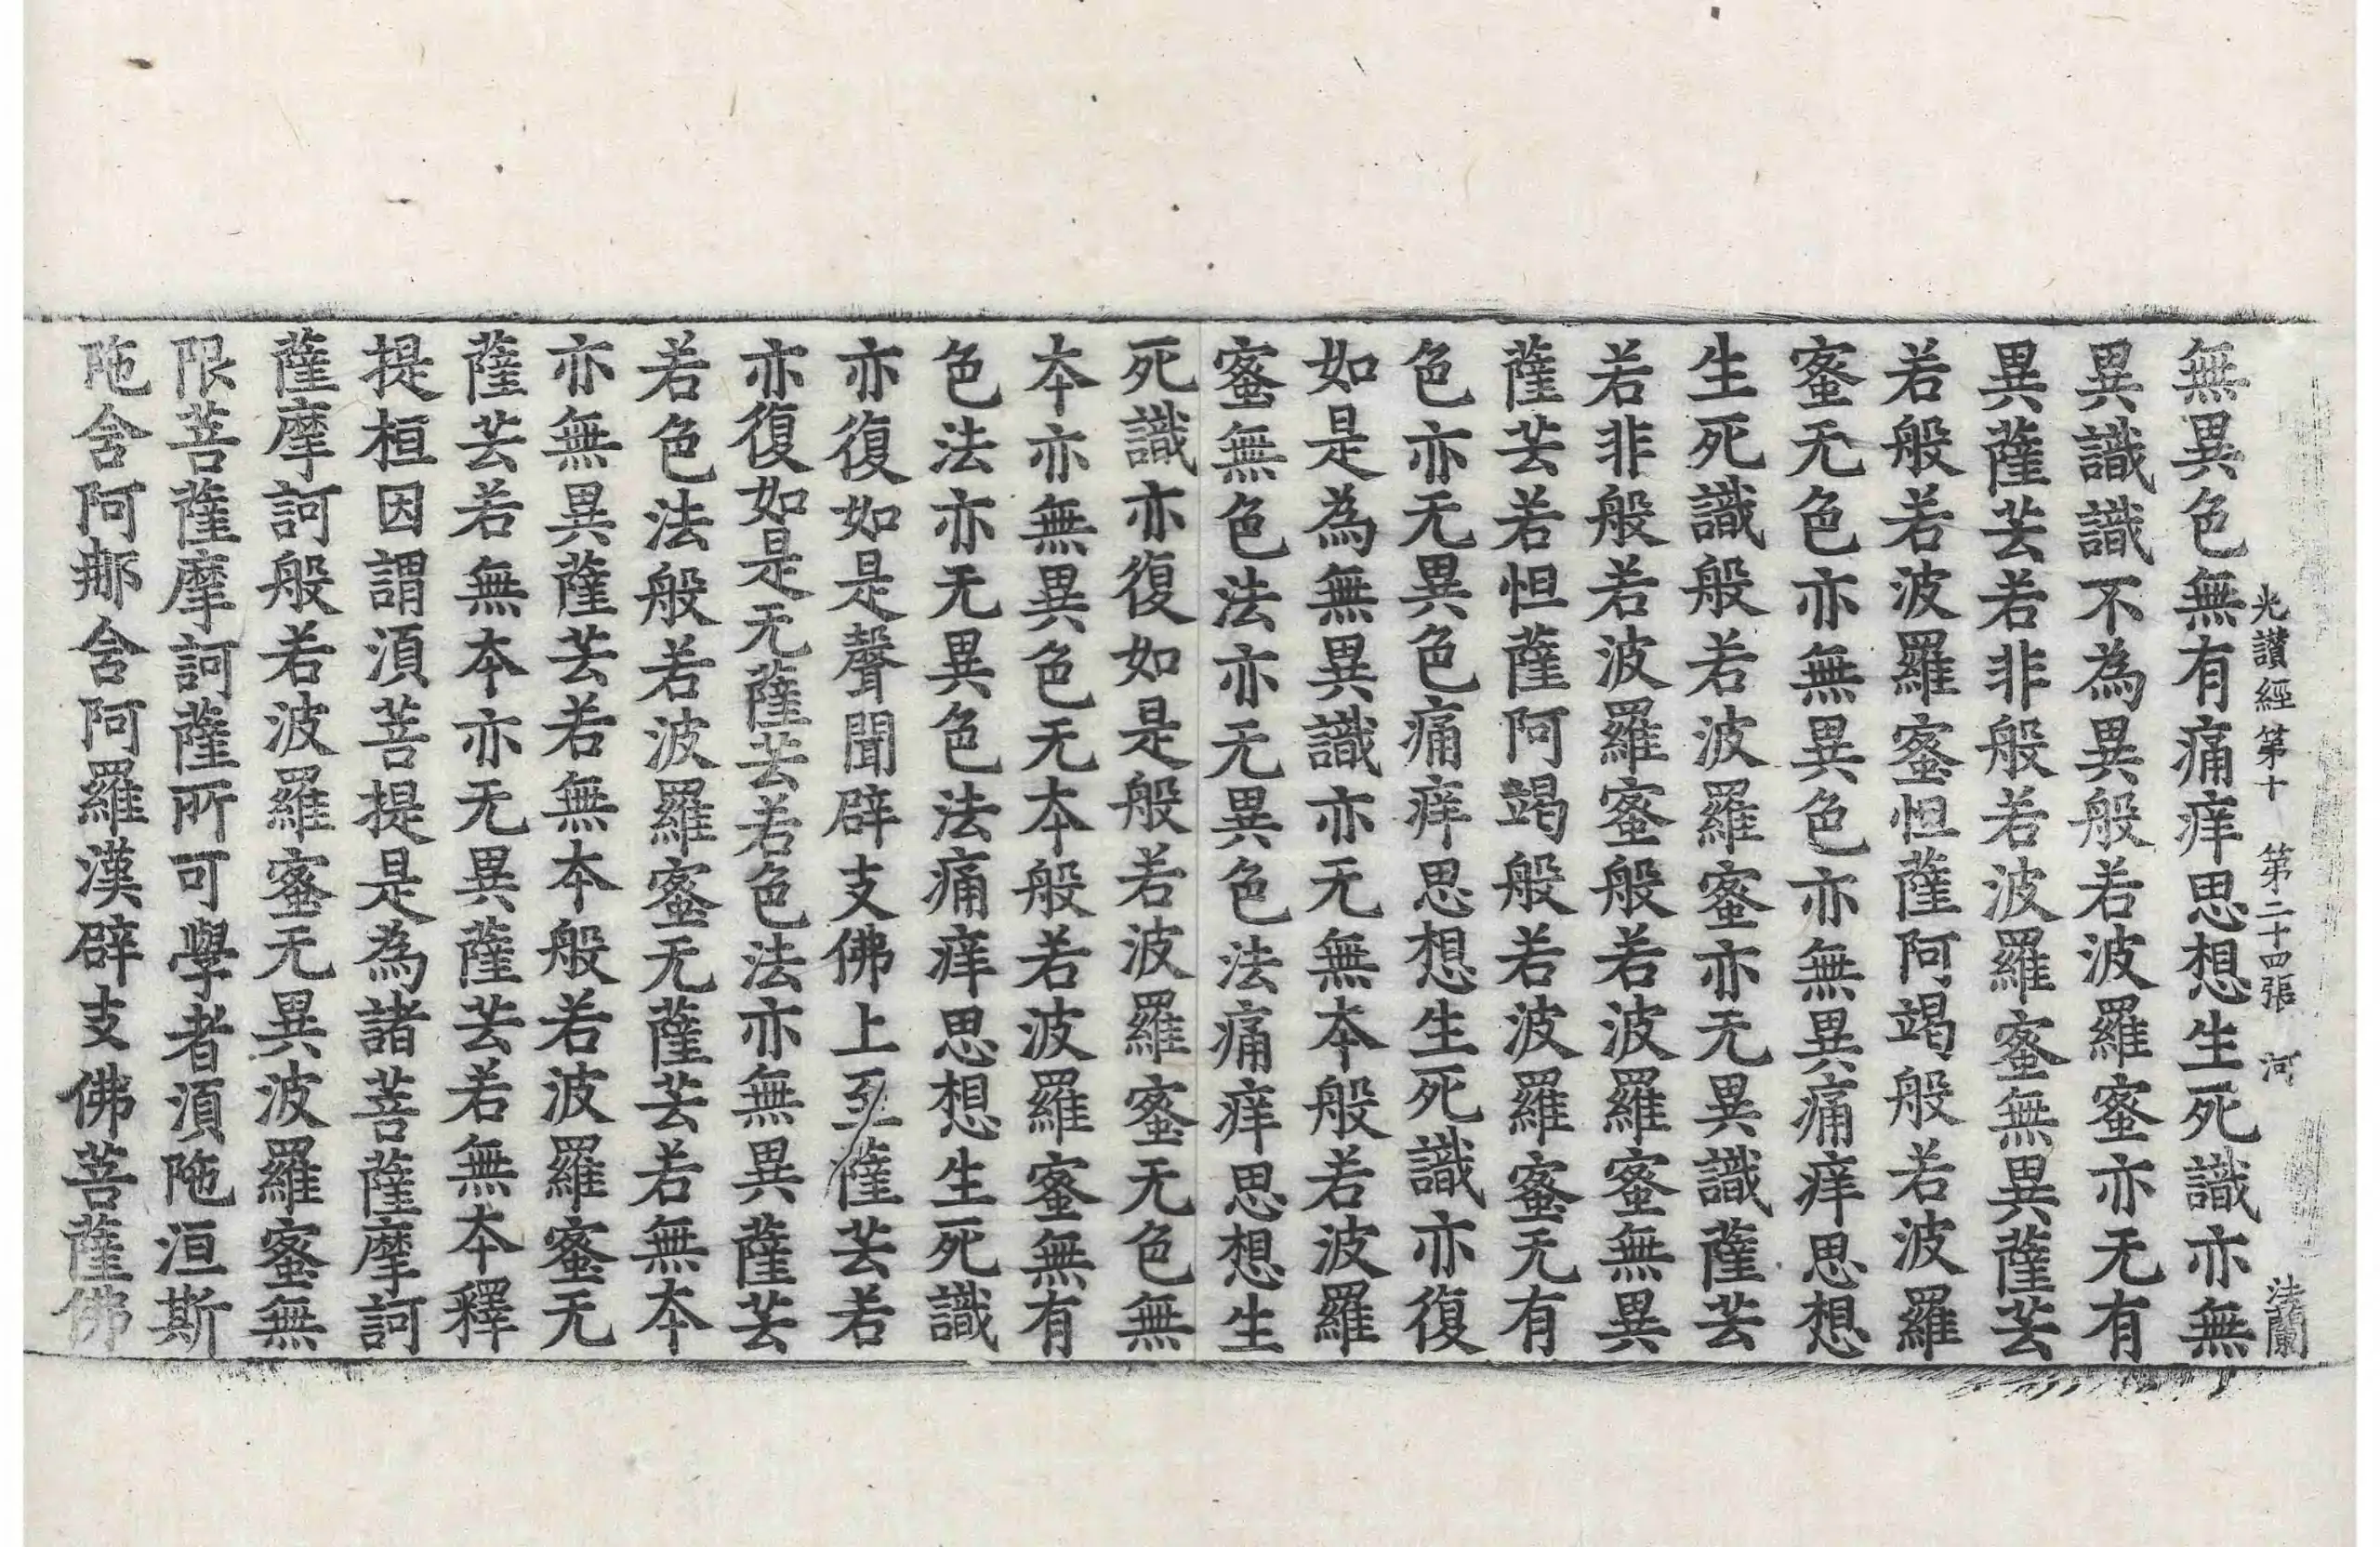 光讃經第十 第二十四張 河 法蘭
無異色無有痛痒思想生死識亦無
異識識不為異般若波羅蜜亦无有
異薩芸若非般若波羅蜜無異薩芸
若般若波羅蜜怛薩阿竭般若波羅
蜜无色亦無異色亦無異痛痒思想
生死識般若波羅蜜亦无異識薩芸
若非般若波羅蜜般若波羅蜜無異
薩芸若怛薩阿竭般若波羅蜜无有
色亦无異色痛痒思想生死識亦復
如是為無異識亦无無本般若波羅
蜜無色法亦无異色法痛痒思想生
死識亦復如是般若波羅蜜无色無
本亦無異色无本般若波羅蜜無有
色法亦无異色法痛痒思想生死識
亦復如是聲聞辟支佛上至薩芸若
亦復如是无薩芸若色法亦無異薩芸
若色法般若波羅蜜无薩芸若無本
亦無異薩芸若無本般若波羅蜜无
薩芸若無本亦无異薩芸若無本釋
提桓因謂須菩提是為諸菩薩摩訶
薩摩訶般若波羅蜜无異波羅蜜無
限菩薩摩訶薩所可學者須陁洹斯
陁含阿那含阿羅漢辟支佛菩薩佛